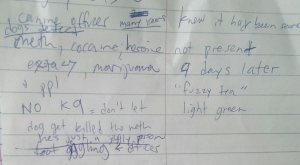 canine officer many years knew it has been
dogs detect
meth, cocaine, heroine not present
extacy, marijuana 9 days later
4 ppl "fuzzy tan"
NO K9 = don't let light green
dog get killed the meth
he's just a person